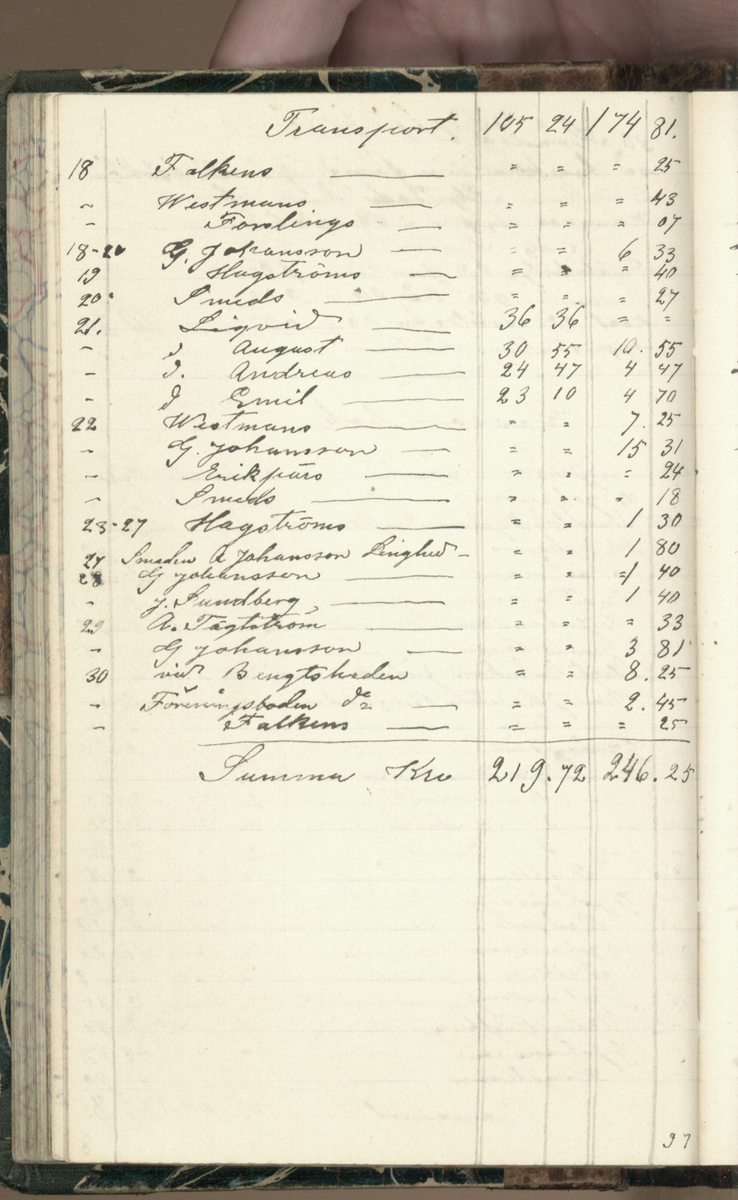 Transport. 105 24 174 81.
18 Falkens — " " " 25
~ Westmans — " " " 43
~ Forslings " " " 07
18-20 G. Johansson — " " 6 33
19 Hagströms — " " " 40
20. Smeds — " " " 27
21. Liqvid — 36 36 " "
~ d August — 30 55 10. 55
~ d. Andreas — 24 47 4 47
~ d Emil — 23 10 4 70
22 Westmans — " " 7. 25
~ G. Johansson — " " 15 31
~ Erikpärs — " " " 24
~ Smeds — " " " 18
23-27 Hagströms — " " 1 30
27 Smeden A Johansson Linghed — " " 1 80
28 G Johansson — " " 1 40
~ J. Sundberg, — " " 1 40
29 A. Tägtström — " " " 33
~ G Johansson — " " 3 81
30 vid Bengtsheden " " 8. 25
~ Föreningsboden do — " " 2. 45
~ Falkens — " " " 25
Summa Kro 219.72 246.25
97